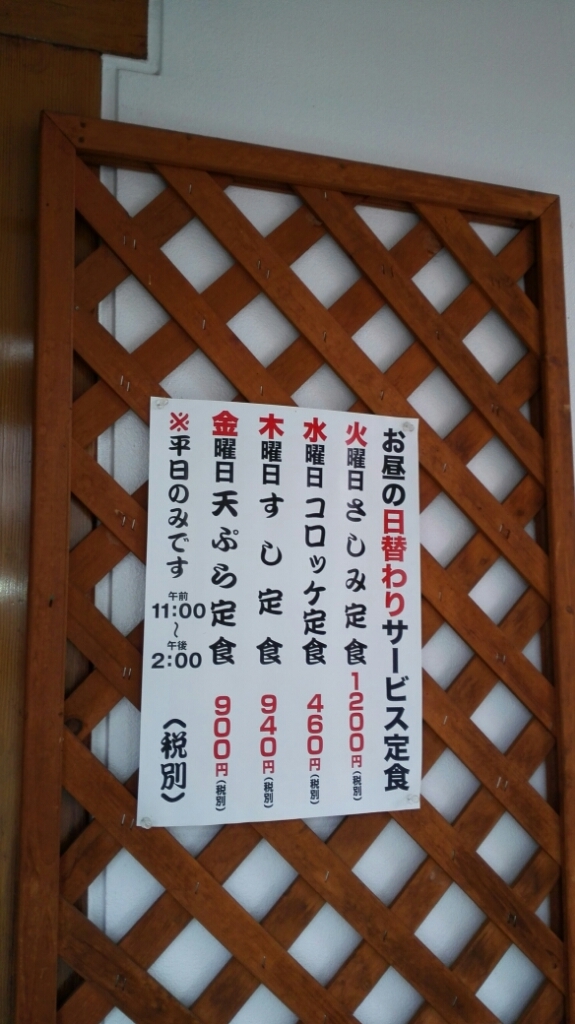 お昼の日替わりサービス定食
火曜日さしみ定食 1200円(税別)
水曜日コロッケ定食 460円(税別)
木曜日すし定食 940円(税別)
金曜日天ぷら定食 900円(税別)
※平日のみです 午前11:00～午後2:00 (税別)